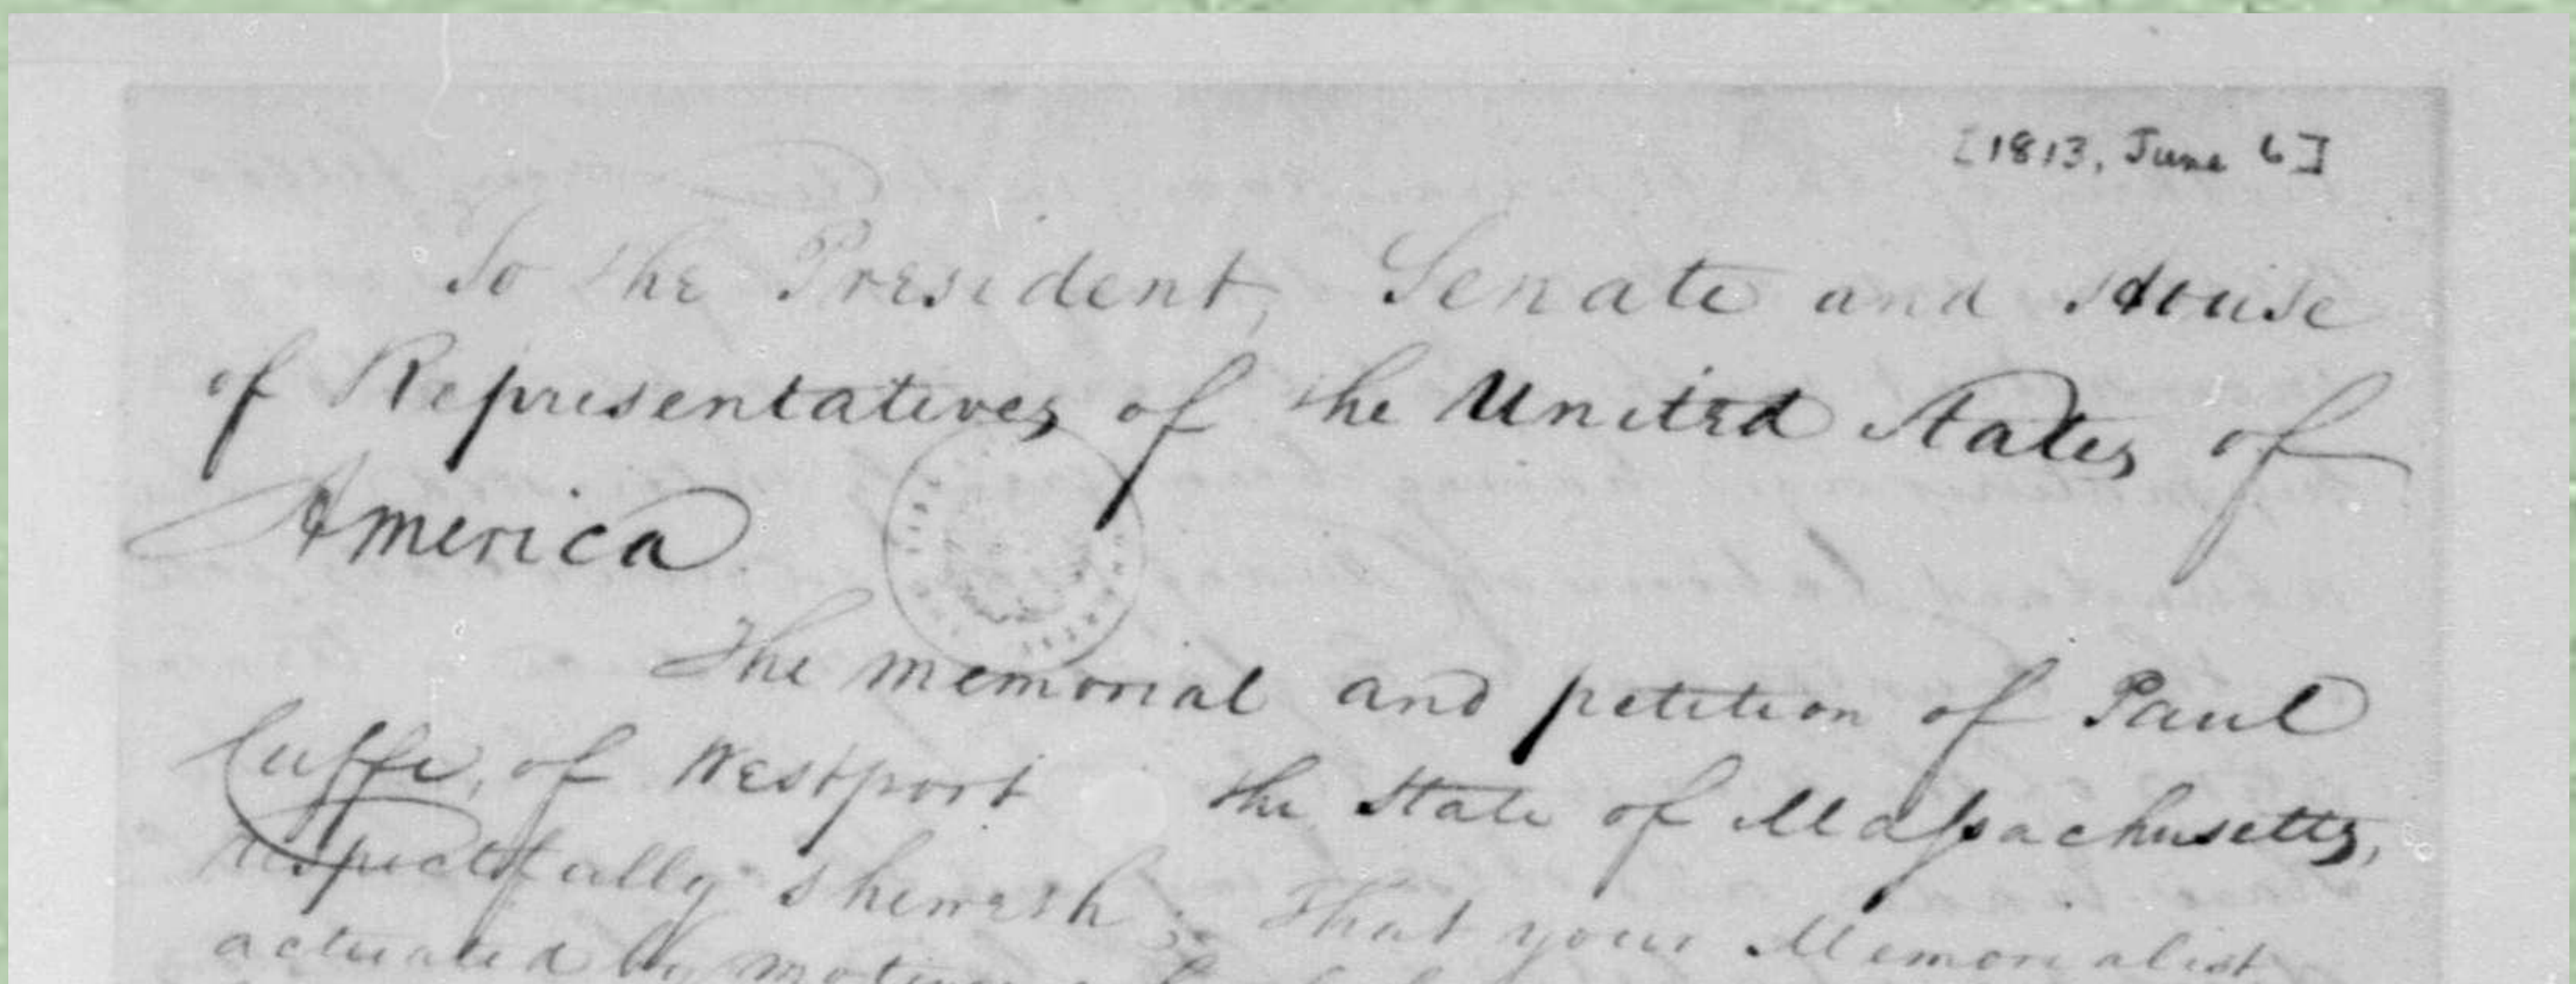 [1813, June 6]
To the President, Senate and House
of Representatives of the United States of
America
The memorial and petition of Paul
Cuffe, of Westport the State of Massachusetts,
respectfully sheweth; That your Memorialist
actuated by motives